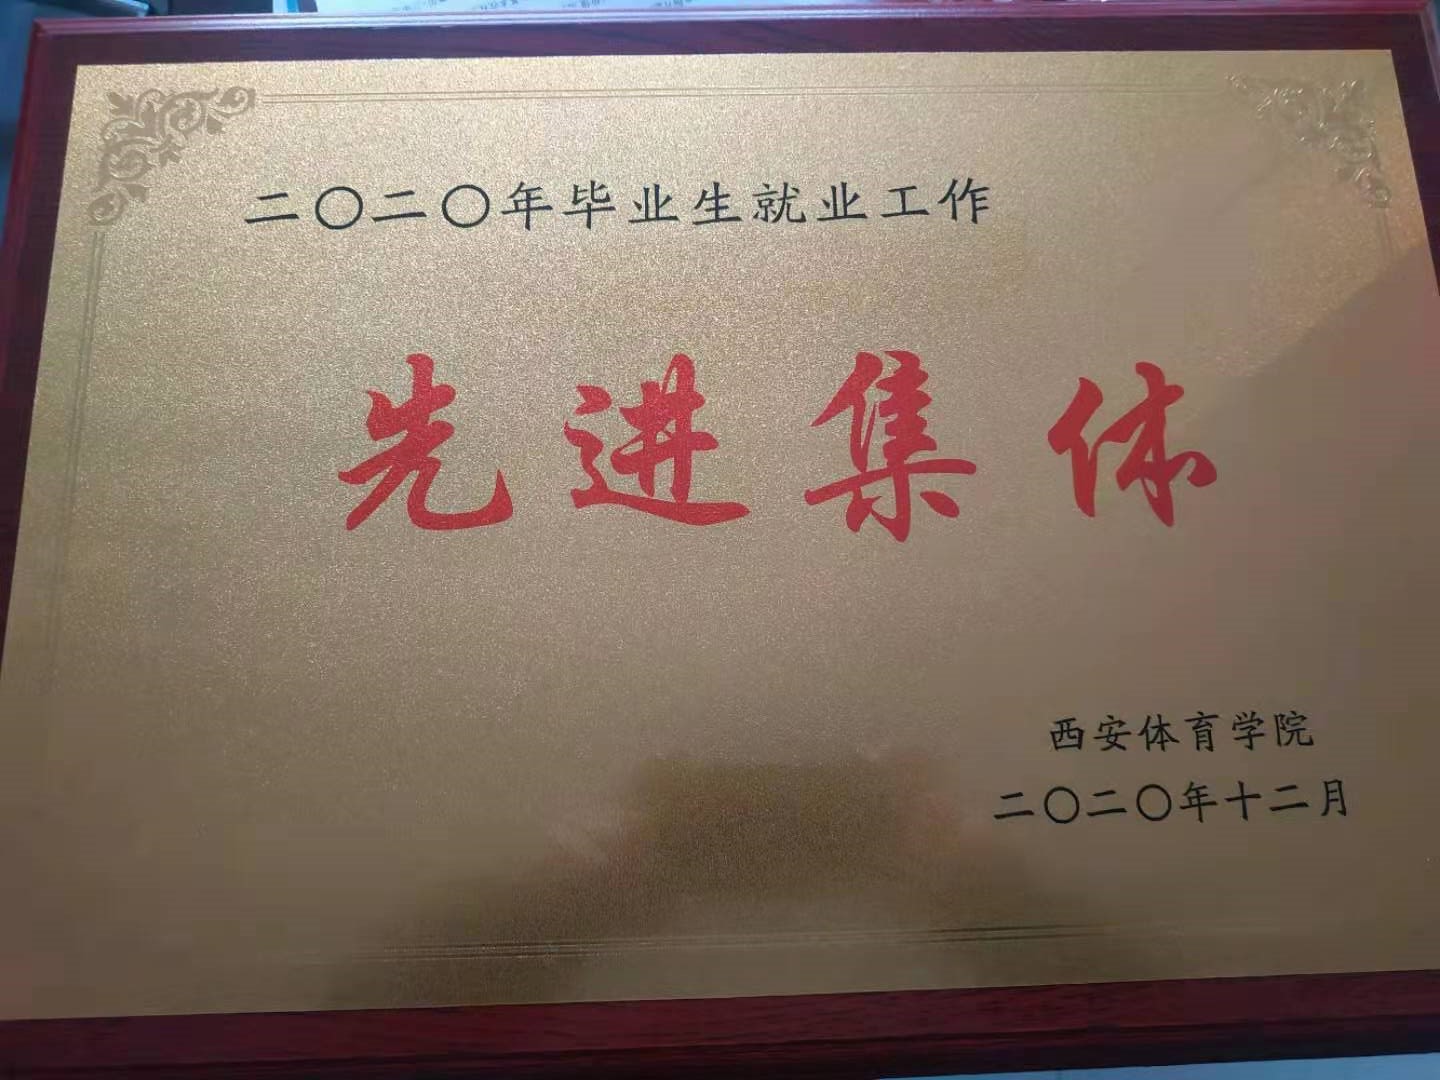 二〇二〇年毕业生就业工作
先进集体
西安体育学院
二〇二〇年十二月